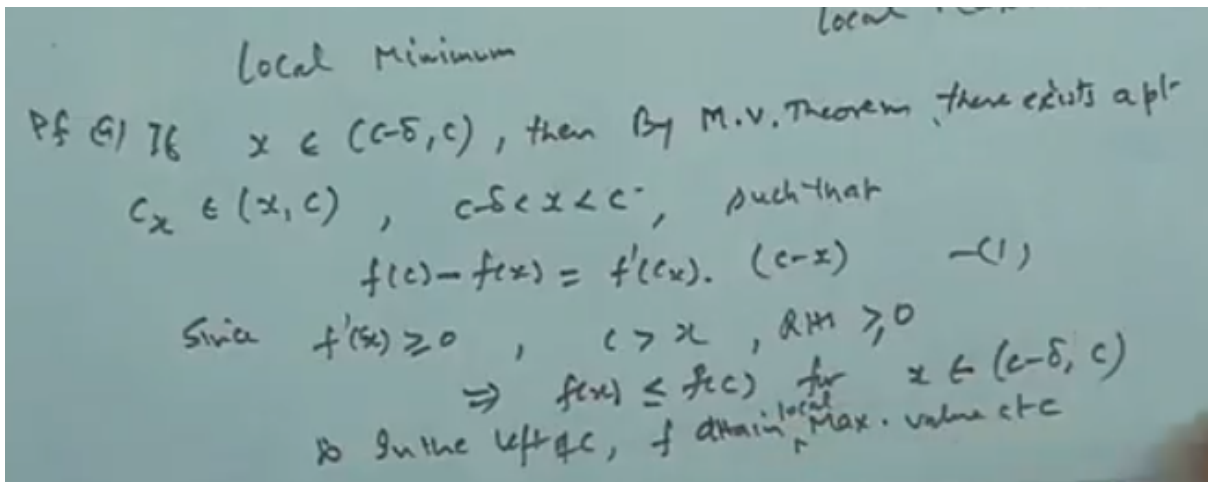 Local
Local Minimum
Pf (a) If x ∈ (c-δ, c), then By M.V. Theorem, there exists a pt-
c_x ∈ (x, c), c-δ < x < c, such that
f(c) - f(x) = f'(c_x). (c-x) -(1)
Since f'(x) ≥ 0, c > x, RHS ≥ 0
⇒ f(x) ≤ f(c) for x ∈ (c-δ, c)
So In the left of c, f attain local Max. value at c